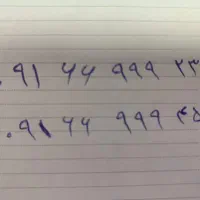 .۹۱ ۴۴ ۹۹۹ ۲۳
.۹۱ ۴۴ ۹۹۹ ۴۵